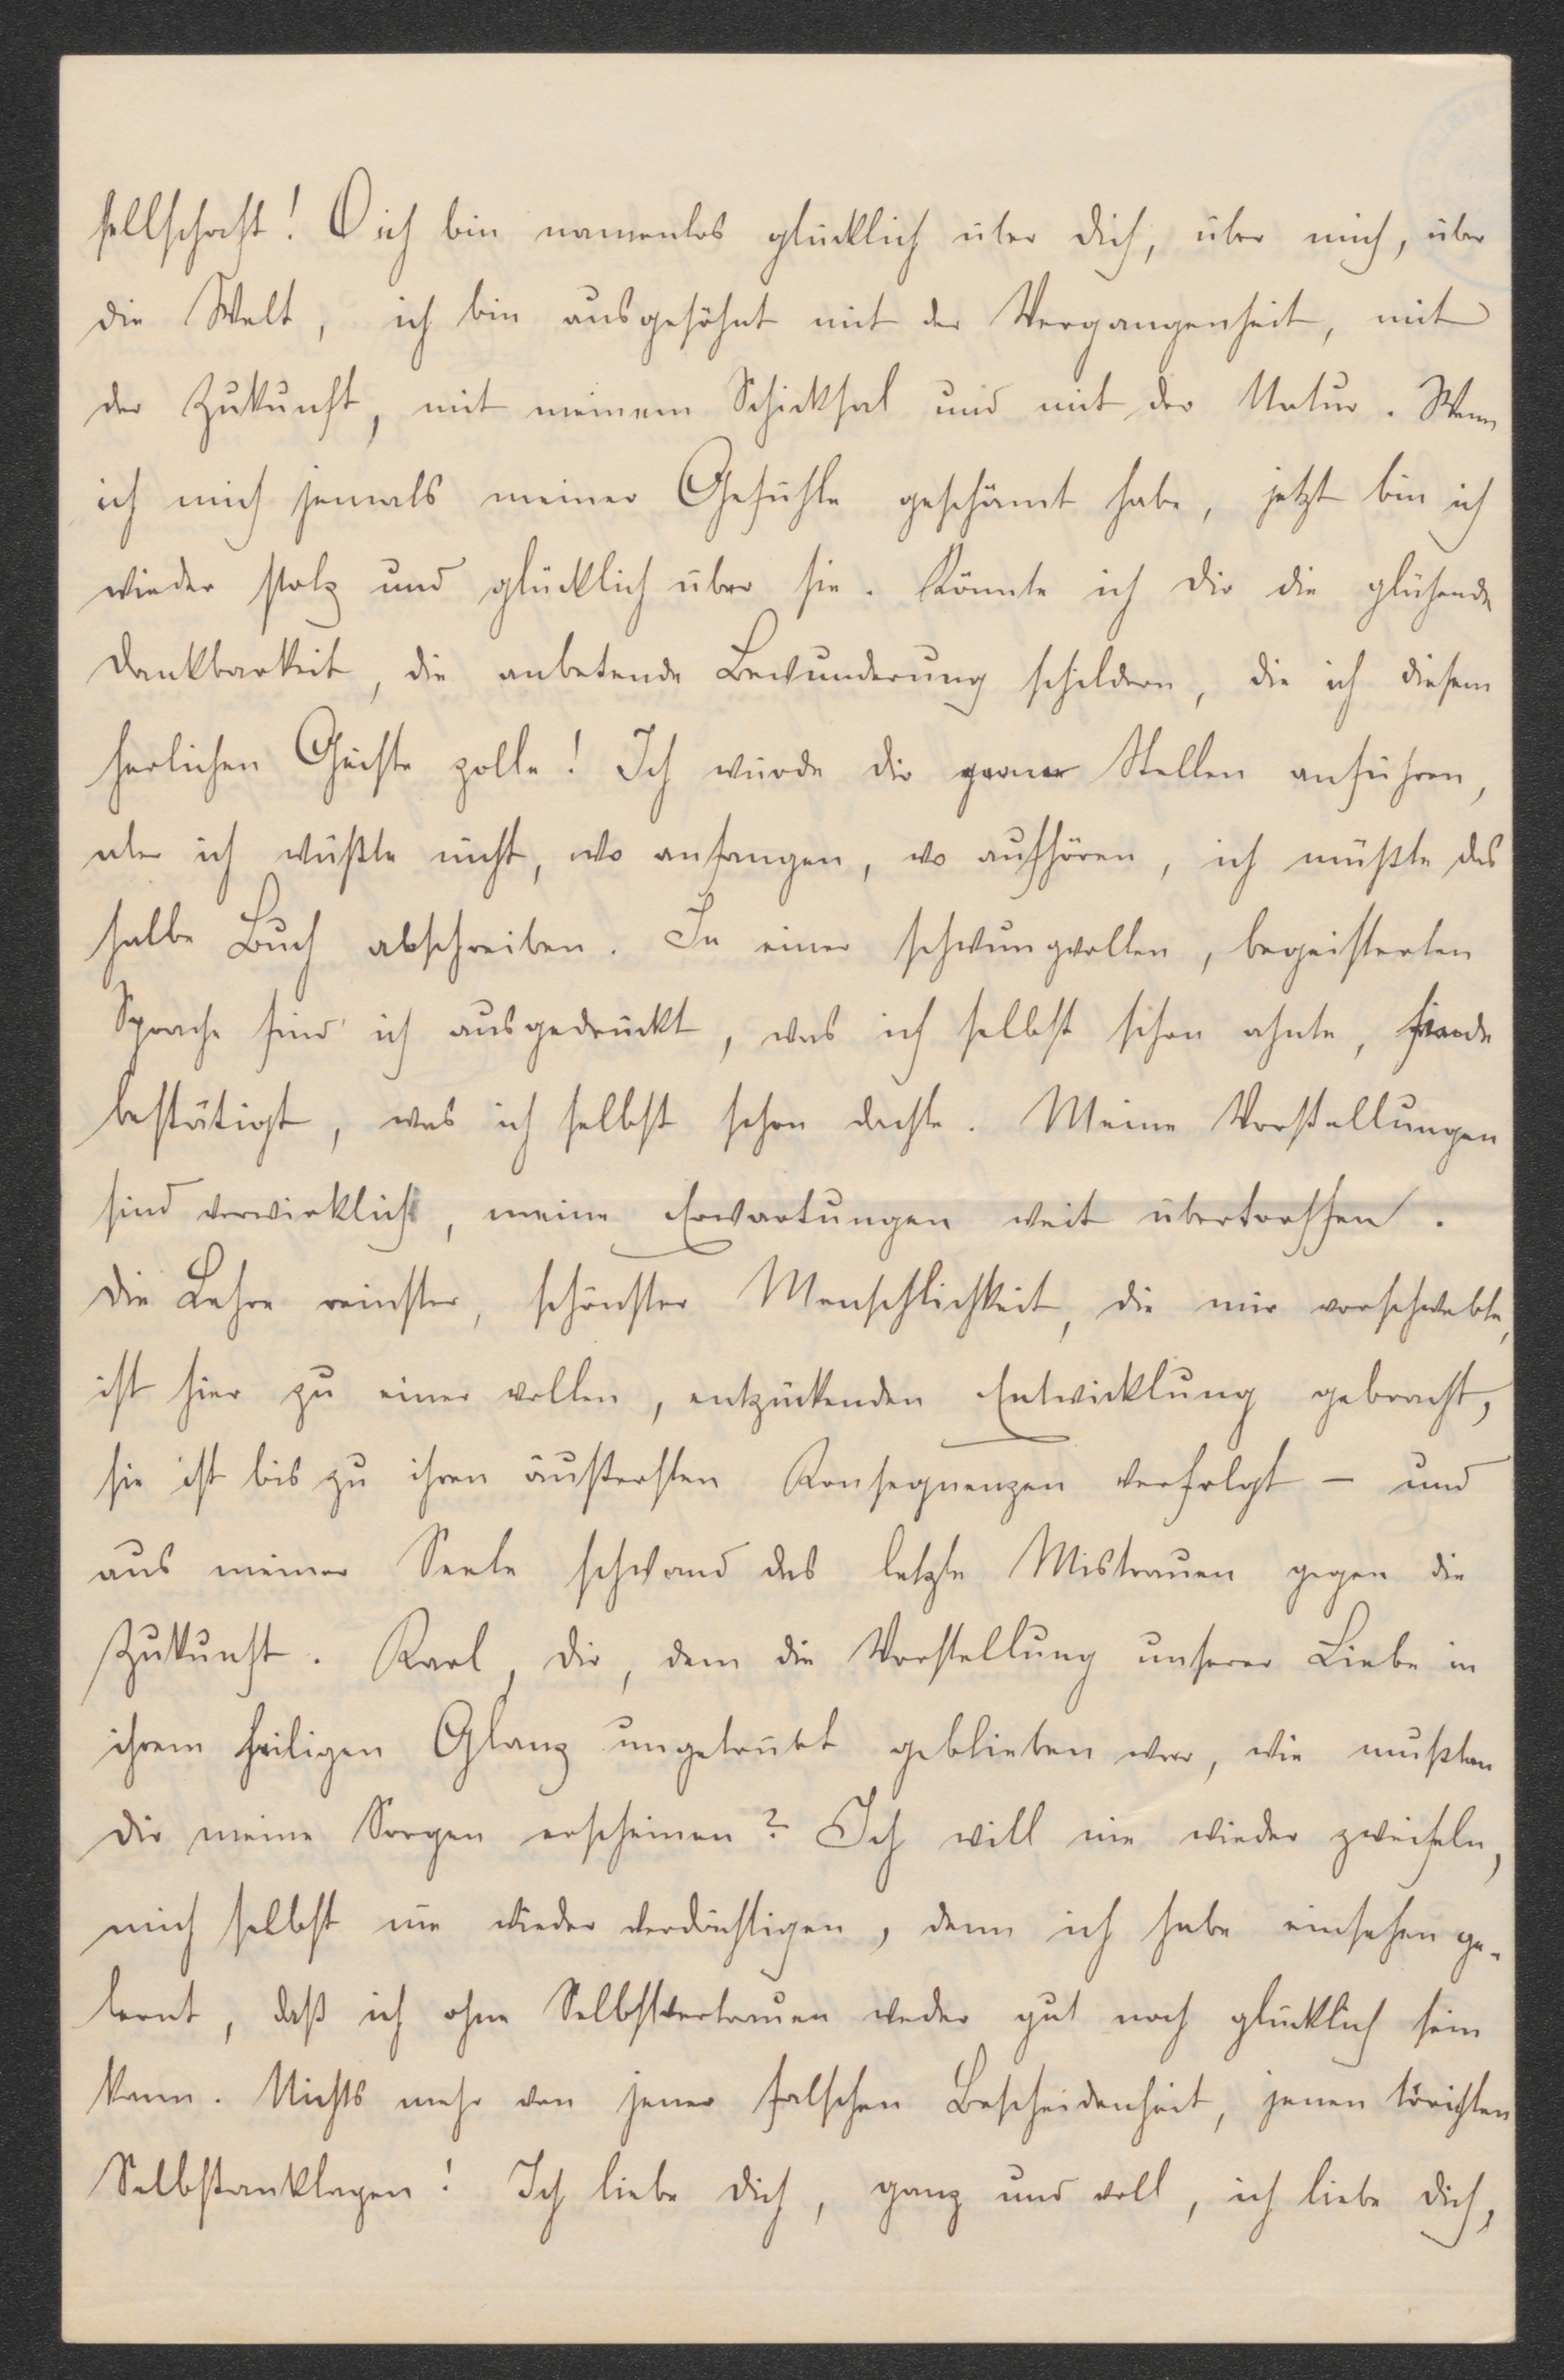 sellschaft! O ich bin namenlos glücklich über dich, über mich, über
die Welt, ich bin ausgesöhnt mit der Vergangenheit, mit
der Zukunft, mit meinem Schicksal und mit der Natur. Wenn
ich mich jemals meiner Gefühle geschämt habe, jetzt bin ich
wieder stolz und glücklich über sie. Könnte ich dir die glühende
Dankbarkeit, die anbetende Bewunderung schildern, die ich diesem
herlichen Geiste zolle! Ich würde dir gerne Stellen anführen,
aber ich wüßte nicht, wo anfangen, wo aufhören, ich müßte das
halbe Buch abschreiben. In einer schwungvollen, begeisterten
Sprache find' ich ausgedrückt, was ich selbst schon ahnte, finde
bestätigt, was ich selbst schon dachte. Meine Vorstellungen
sind verwirklicht, meine Erwartungen weit übertroffen.
Die Lehre reinster, schönster Menschlichkeit, die mir vorschwebte,
ist hier zu einer vollen, entzückenden Entwicklung gebracht,
sie ist bis zu ihren äußersten Konsequenzen verfolgt – und
aus meiner Seele schwand das letzte Mistrauen gegen die
Zukunft. Karl, dir, dem die Vorstellung unserer Liebe in
ihrem heiligen Glanz ungetrübt geblieben war, wie mußten
dir meine Sorgen erscheinen? Ich will nie wieder zweifeln,
mich selbst nie wieder verdächtigen, denn ich habe einsehen ge-
lernt, daß ich ohne Selbstvertrauen weder gut noch glücklich sein
kann. Nichts mehr von jener falschen Bescheidenheit, jenen törichten
Selbstanklagen! Ich liebe dich, ganz und voll, ich liebe dich,